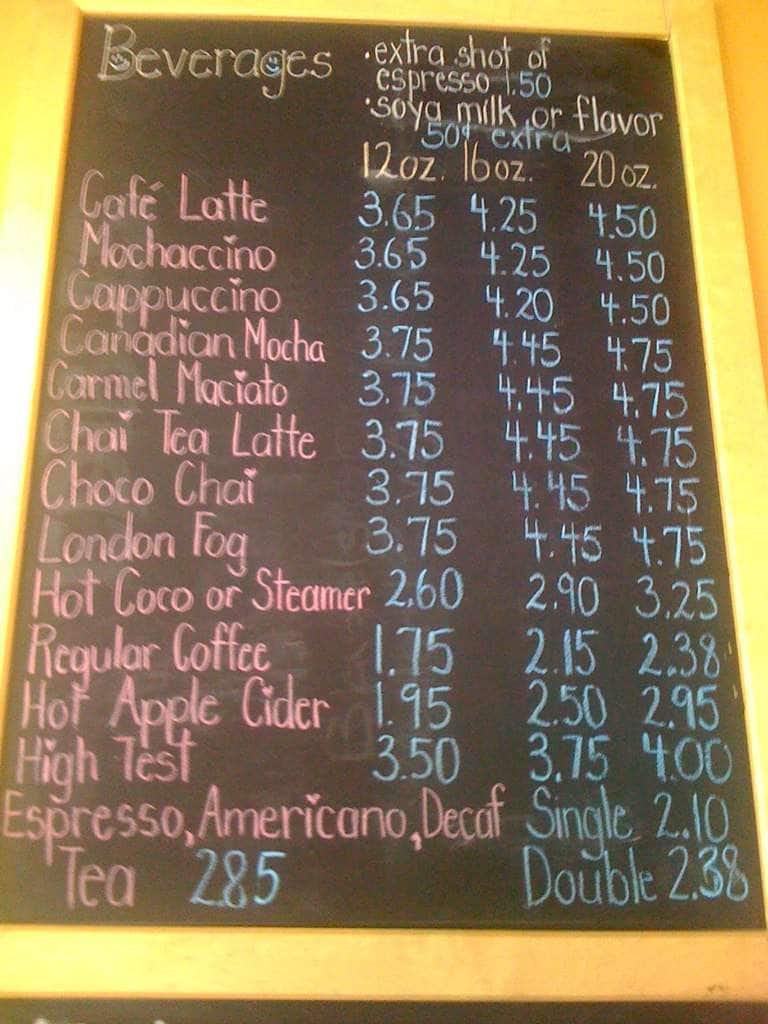 Beverages
•extra shot of
espresso 1.50
•soya milk or flavor
50¢ extra
12oz. 16oz. 20oz.
Café Latte 3.65 4.25 4.50
Mochaccino 3.65 4.25 4.50
Cappuccino 3.65 4.20 4.50
Canadian Mocha 3.75 4.45 4.75
Carmel Maciato 3.75 4.45 4.75
Chai Tea Latte 3.75 4.45 4.75
Choco Chai 3.75 4.45 4.75
London Fog 3.75 4.45 4.75
Hot Coco or Steamer 2.60 2.90 3.25
Regular Coffee 1.75 2.15 2.38
Hot Apple Cider 1.95 2.50 2.95
High Test 3.50 3.75 4.00
Espresso, Americano, Decaf Single 2.10
Tea 2.85 Double 2.38